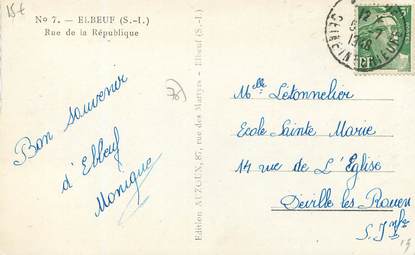 15€
No 7. - ELBEUF (S.-I.)
Rue de la République
Bon souvenir
d'Elbeuf
Monique
Edition AUZOUX, 87, rue des Martyrs - Elbeuf (S.-I.)
SEINE INFÉRIEURE
RF
Melle Létonnelier
Ecole Sainte Marie
14 rue de L'Eglise
Deville les Rouen
S. Infre